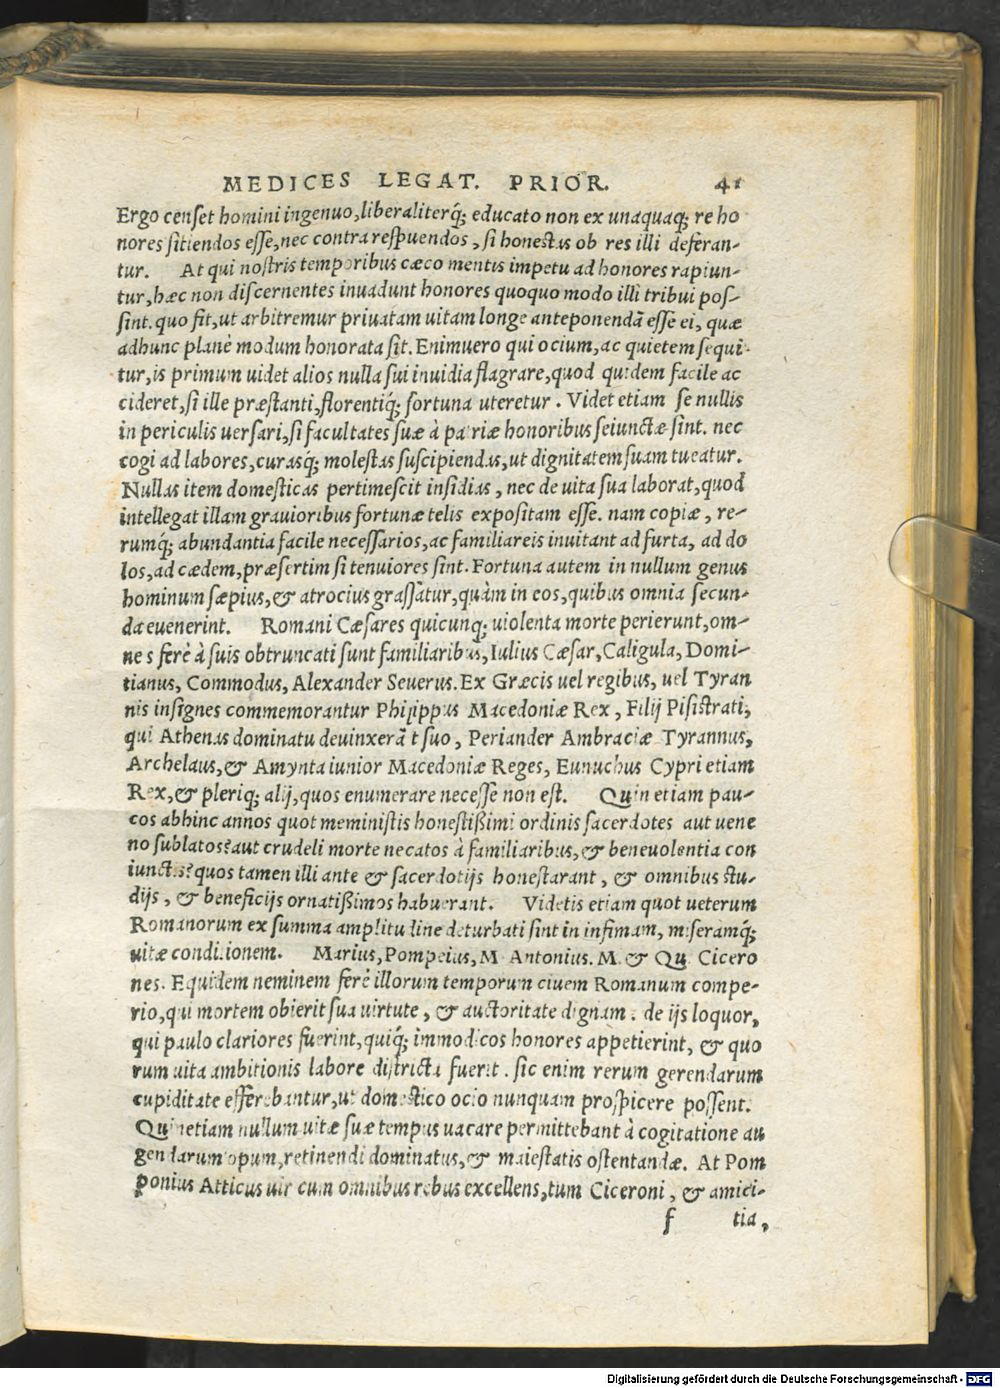 MEDICES LEGAT. PRIOR. 41
Ergo censet homini ingenuo, liberaliterq; educato non ex unaquaq; re ho
nores sitiendos esse, nec contra respuendos, si honestas ob res illi deferan-
tur. At qui nostris temporibus cæco mentis impetu ad honores rapiun-
tur, hæc non discernentes inuadunt honores quoquo modo illi tribui pos-
sint. quo fit, ut arbitremur priuatam uitam longe anteponendã esse ei, quæ
adhunc planè modum honorata sit. Enimuero qui ocium, ac quietem sequi-
tur, is primum uidet alios nulla sui inuidia flagrare, quod quidem facile ac
cideret, si ille præstanti, florentiq́; fortuna uteretur. Videt etiam se nullis
in periculis uersari, si facultates suæ à patriæ honoribus seiunctæ sint. nec
cogi ad labores, curasq́; molestas suscipiendas, ut dignitatem suam tueatur.
Nullas item domesticas pertimescit insidias, nec de uita sua laborat, quod
intellegat illam grauioribus fortunæ telis expositam esse. nam copiæ, re-
rumq́; abundantia facile necessarios, ac familiareis inuitant ad furta, ad do
los, ad cædem, præsertim si tenuiores sint. Fortuna autem in nullum genus
hominum sæpius, & atrocius grassatur, quàm in eos, quibus omnia secun-
da euenerint. Romani Cæsares quicunq; uiolenta morte perierunt, om-
nes ferè à suis obtruncati sunt familiaribus, Iulius Cæsar, Caligula, Domi-
tianus, Commodus, Alexander Seuerus. Ex Græcis uel regibus, uel Tyran
nis insignes commemorantur Philippus Macedoniæ Rex, Filij Pisistrati,
qui Athenas dominatu deuinxerãt suo, Periander Ambraciæ Tyrannus,
Archelaus, & Amynta iunior Macedoniæ Reges, Eunuchus Cypri etiam
Rex, & pleriq; alij, quos enumerare necesse non est. Quin etiam pau-
cos abhinc annos quot meministis honestißimi ordinis sacerdotes aut uene
no sublatos? aut crudeli morte necatos à familiaribus, & beneuolentia con
iunctis? quos tamen illi ante & sacerdotijs honestarant, & omnibus stu-
dijs, & beneficijs ornatißimos habuerant. Videtis etiam quot ueterum
Romanorum ex summa amplitudine deturbati sint in infimam, miseramq́;
uitæ conditionem. Marius, Pompeius, M. Antonius. M. & Qu. Cicero
nes. Equidem neminem ferè illorum temporum ciuem Romanum compe-
rio, qui mortem obierit sua uirtute, & auctoritate dignam. de ijs loquor,
qui paulo clariores fuerint, quiq́; immodicos honores appetierint, & quo
rum uita ambitionis labore districta fuerit. sic enim rerum gerendarum
cupiditate efferebantur, ut domestico ocio nunquam prospicere possent.
Quinetiam nullum uitæ suæ tempus uacare permittebant à cogitatione au
gendarum opum, retinendi dominatus, & maiestatis ostentandæ. At Pom
ponius Atticus uir cum omnibus rebus excellens, tum Ciceroni, & amici-
f tia,
Digitalisierung gefördert durch die Deutsche Forschungsgemeinschaft - DFG